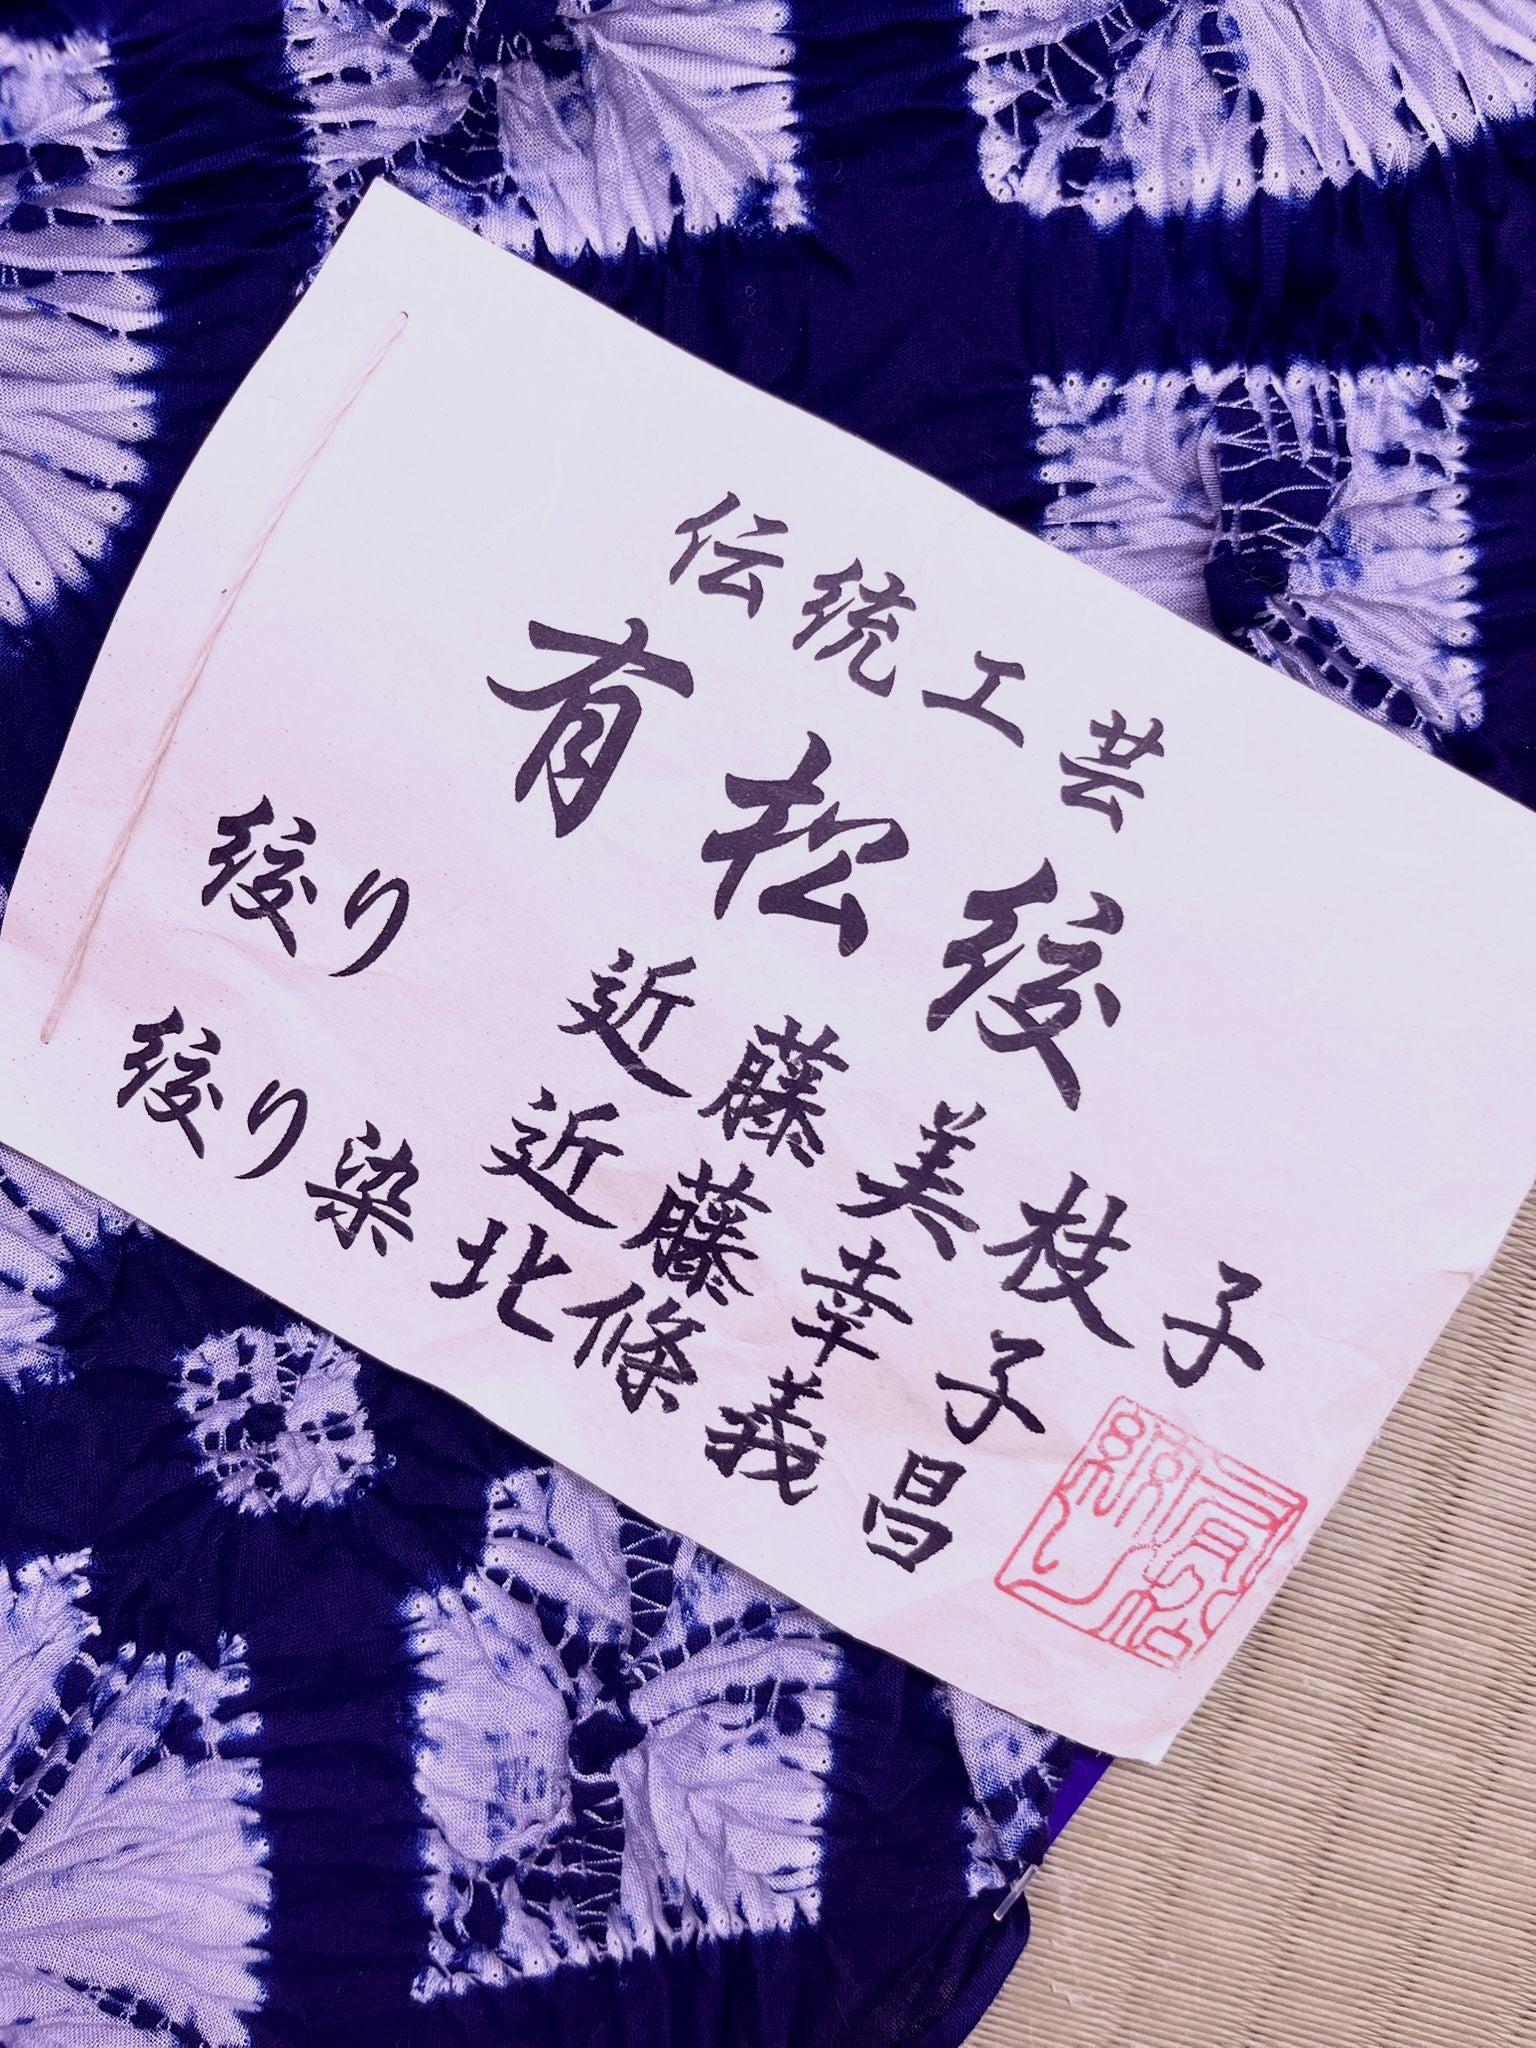 伝統工芸
有松絞
絞り 近藤美枝子
近藤幸子
絞り染 北條義昌
有松
絞